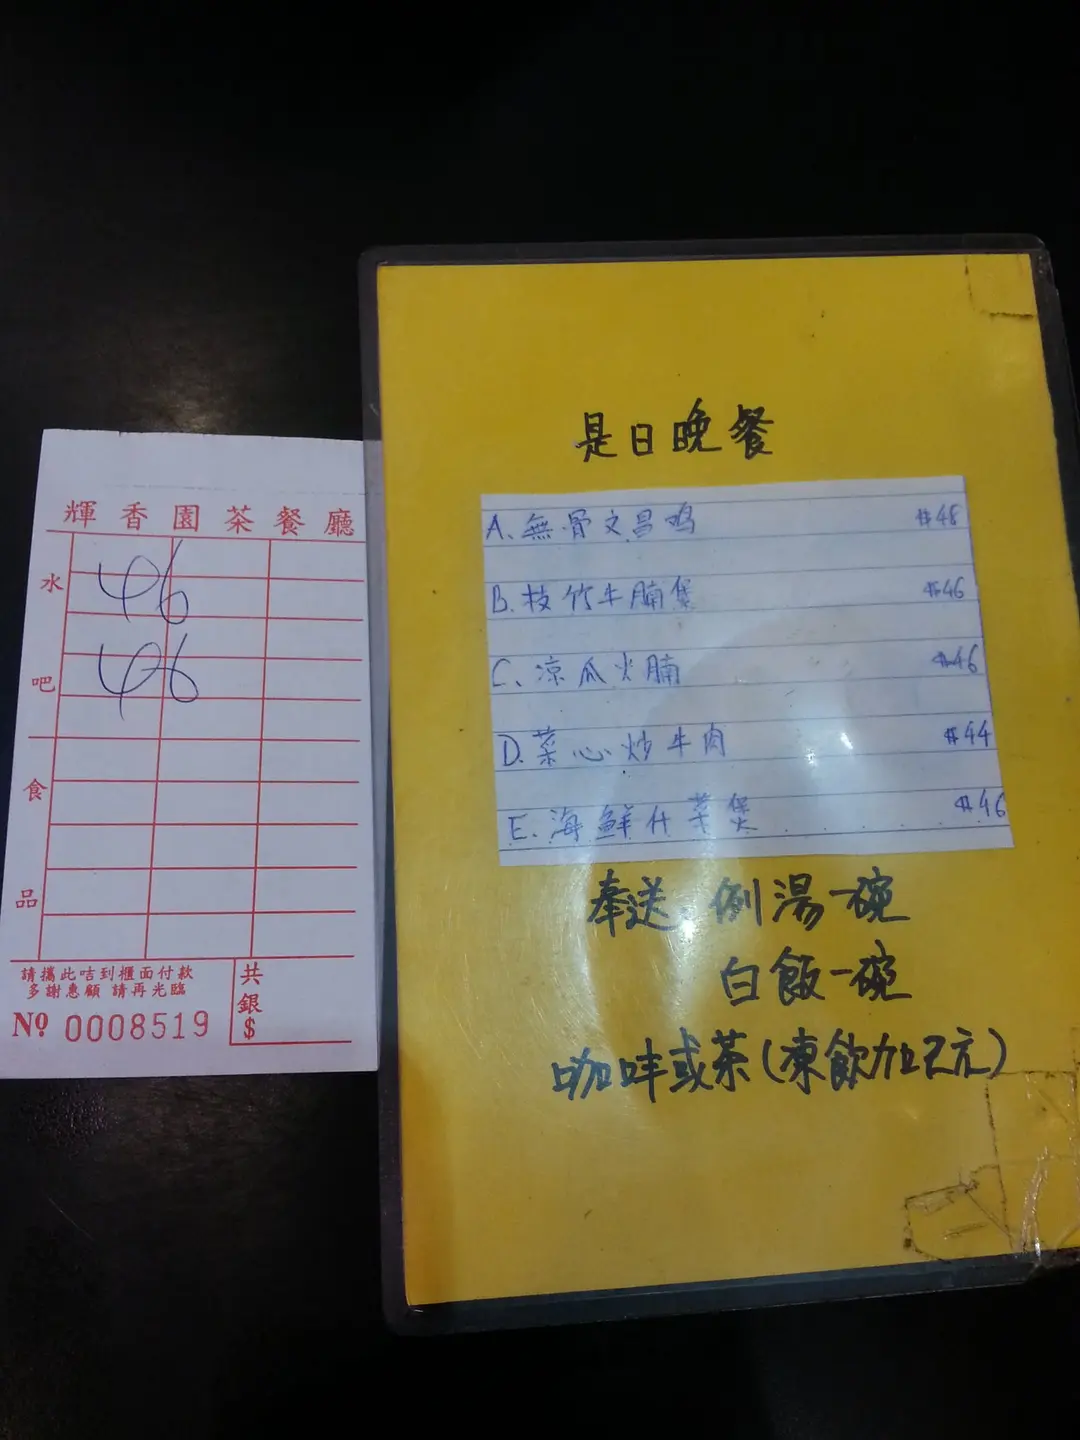 輝香園茶餐廳
水吧
46
46
食品
請攜此咭到櫃面付款
多謝惠顧 請再光臨
共銀$
Nº 0008519
是日晚餐
A、無骨文昌鸡 $48
B.枝竹牛腩煲 $46
C、凉瓜火腩 $46
D.菜心炒牛肉 $44
E.海鮮什菜煲 $46
奉送：例湯一碗
白飯一碗
咖啡或茶(凍飲加2元)